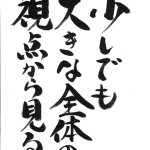 少しでも
大きな全体の
視点から見る